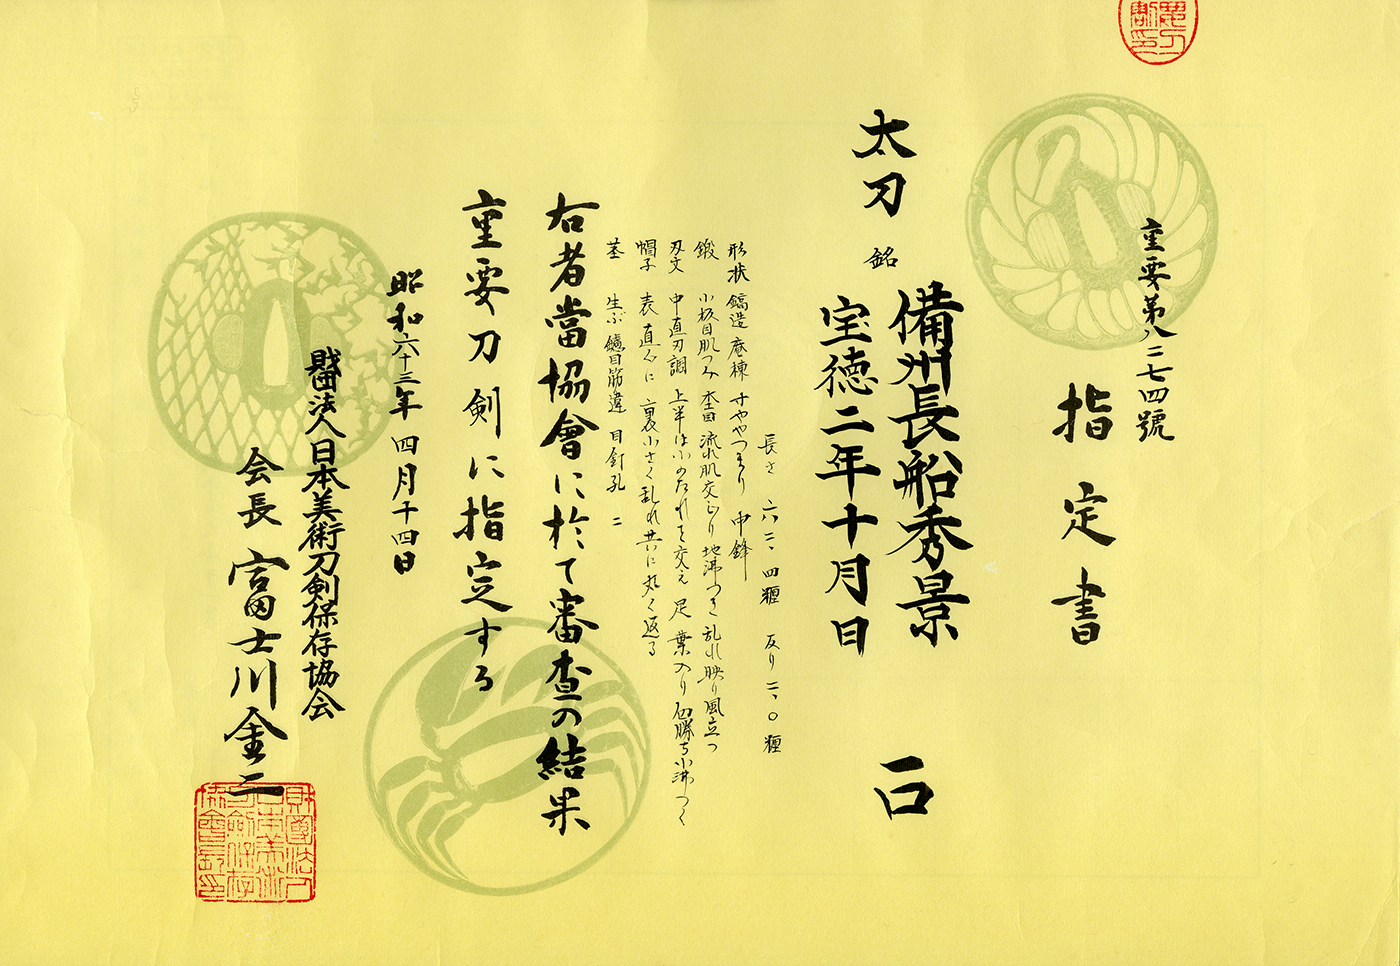 重要第八二七四號
指定書
太刀 銘 備州長船秀景 一口
宝徳二年十月日
長さ 六二、四糎 反り 二、〇糎
形状 鎬造 庵棟 寸やゝつまり 中鋒
鍛 小板目肌つみ 杢目 流れ肌交じり 地沸つき 乱れ映り風立つ
刃文 中直刃調 上半は小のたれを交え 足 葉入り 匂勝ち小沸つく
帽子 表 直ぐに 裏 小さく乱れ 共に丸く返る
茎 生ぶ 鑢目筋違 目釘孔 二
右者當協會に於て審査の結果
重要刀剣に指定する
昭和六十三年 四月 十四日
財団法人日本美術刀剣保存協会
会長 富士川金二